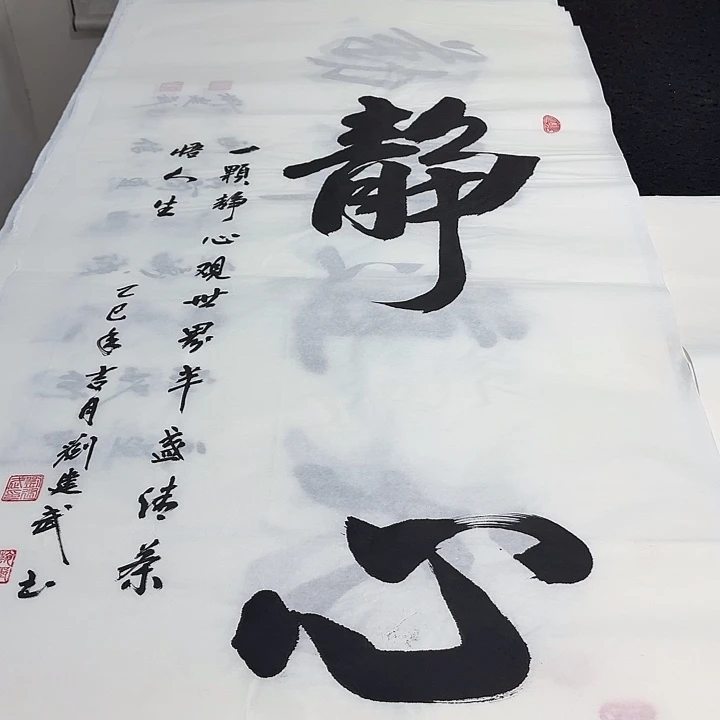 静心
一顆静心观世界半盏清茶
悟人生
乙巳年吉月劉建武书